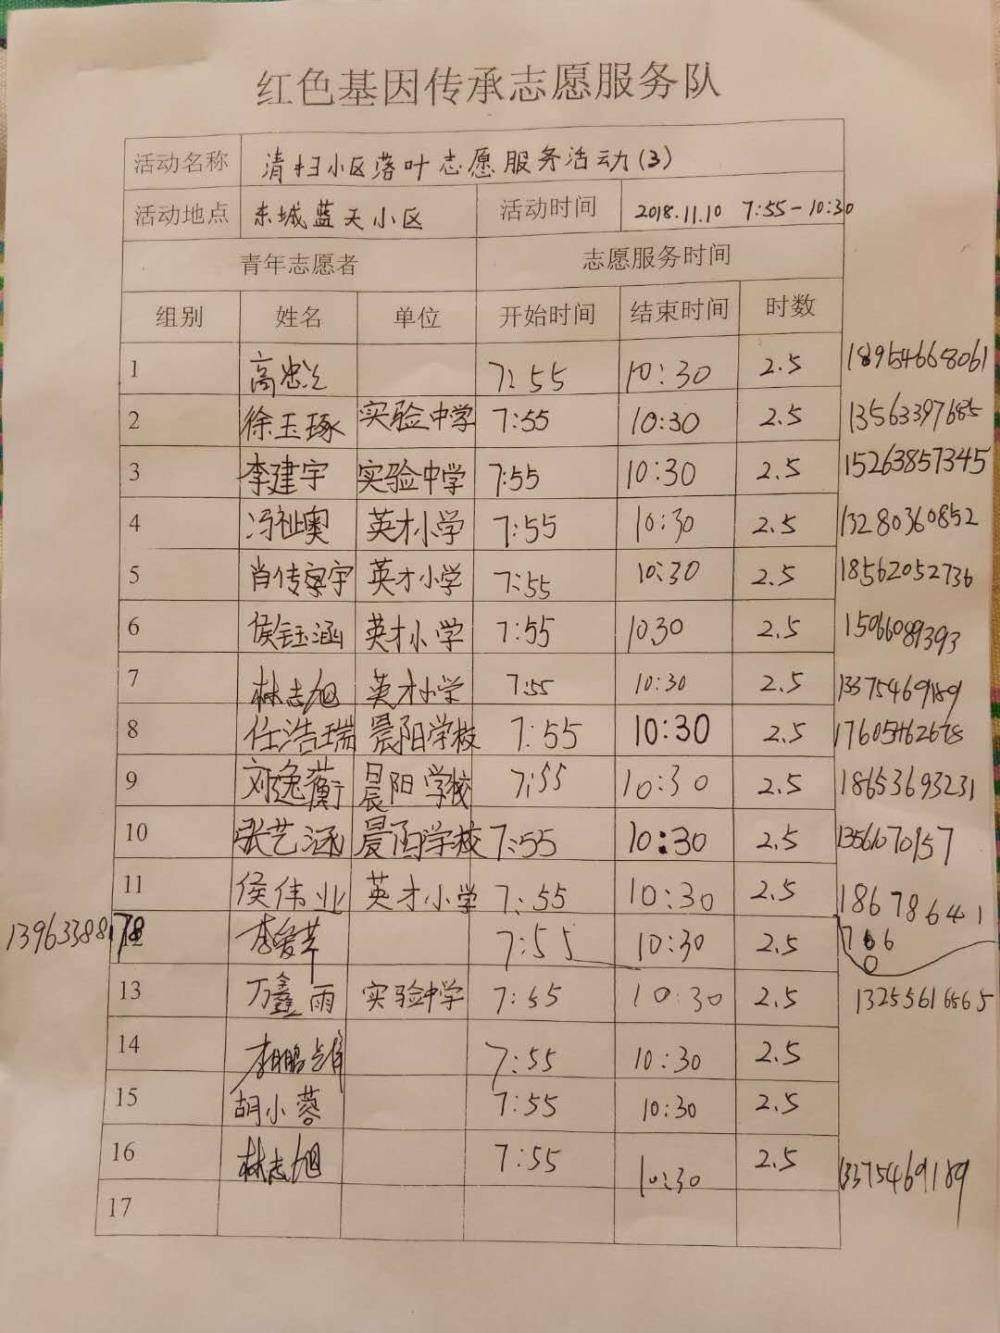 红色基因传承志愿服务队
活动名称 清扫小区落叶志愿服务活动(3)
活动地点 东城蓝天小区 活动时间 2018.11.10 7:55-10:30
青年志愿者 志愿服务时间
组别 姓名 单位 开始时间 结束时间 时数
1 高忠 7:55 10:30 2.5 189546668061
2 徐玉琢 实验中学 7:55 10:30 2.5 13563397685
3 李建宇 实验中学 7:55 10:30 2.5 15263857345
4 冯祉奥 英才小学 7:55 10:30 2.5 13280360852
5 肖传宇 英才小学 7:55 10:30 2.5 18562052736
6 侯钰涵 英才小学 7:55 10:30 2.5 15066089393
7 林志旭 英才小学 7:55 10:30 2.5 13375469189
8 任浩瑞 晨阳学校 7:55 10:30 2.5 17605462678
9 刘逸蘅 晨阳学校 7:55 10:30 2.5 18653693231
10 张艺涵 晨阳学校 7:55 10:30 2.5
11 侯伟业 英才小学 7:55 10:30 2.5 186786417660
13963388178 12 李爱苹 7:55 10:30 2.5
13 万鑫雨 实验中学 7:55 10:30 2.5 13255616565
14 7:55 10:30 2.5
15 胡小蓉 7:55 10:30 2.5
16 林志旭 7:55 10:30 2.5 13375469189
17